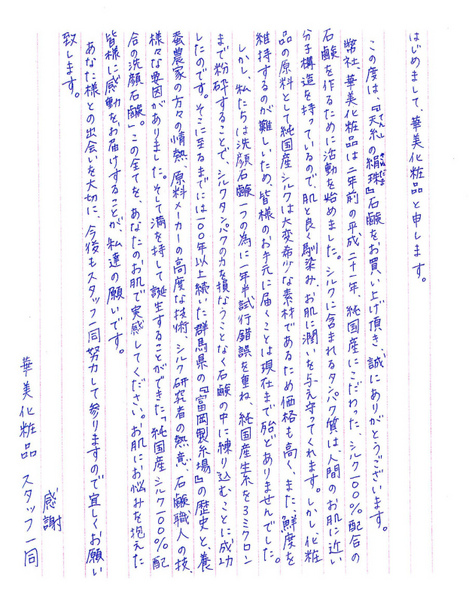 はじめまして、華美化粧品と申します。
この度は、『天糸の絹珠』石鹸をお買い上げ頂き、誠にありがとうございます。
弊社、華美化粧品は二年前の平成二十一年、純国産にこだわった、シルク100%配合の
石鹸を作るために活動を始めました。シルクに含まれるタンパク質は、人間のお肌に近い
分子構造を持っているので、肌と良く馴染み、お肌に潤いを与え守ってくれます。しかし化粧
品の原料として純国産シルクは大変希少な素材であるため価格も高く、また、鮮度を
維持するのが難しいため、皆様のお手元に届くことは現在まで殆どありませんでした。
しかし、私たちは洗顔石鹸一つの為に一年半試行錯誤を重ね、純国産生糸を3ミクロン
まで粉砕することで、シルクタンパクの力を損なうことなく石鹸の中に練り込むことに成功
したのです。そこに至るまでには100年以上続いた群馬県の『富岡製糸場』の歴史と、養
蚕農家の方々の情熱、原料メーカーの高度な技術、シルク研究者の熱意、石鹸職人の技、
様々な要因がありました。そして満を持して誕生することができた「純国産シルク100%配
合の洗顔石鹸」。この全てを、あなたのお肌で実感してください。お肌にお悩みを抱えた
皆様に感動をお届けすることが、私達の願いです。
あなた様との出会いを大切に、今後もスタッフ一同努力して参りますので宜しくお願い
致します。
感謝
華美化粧品 スタッフ一同